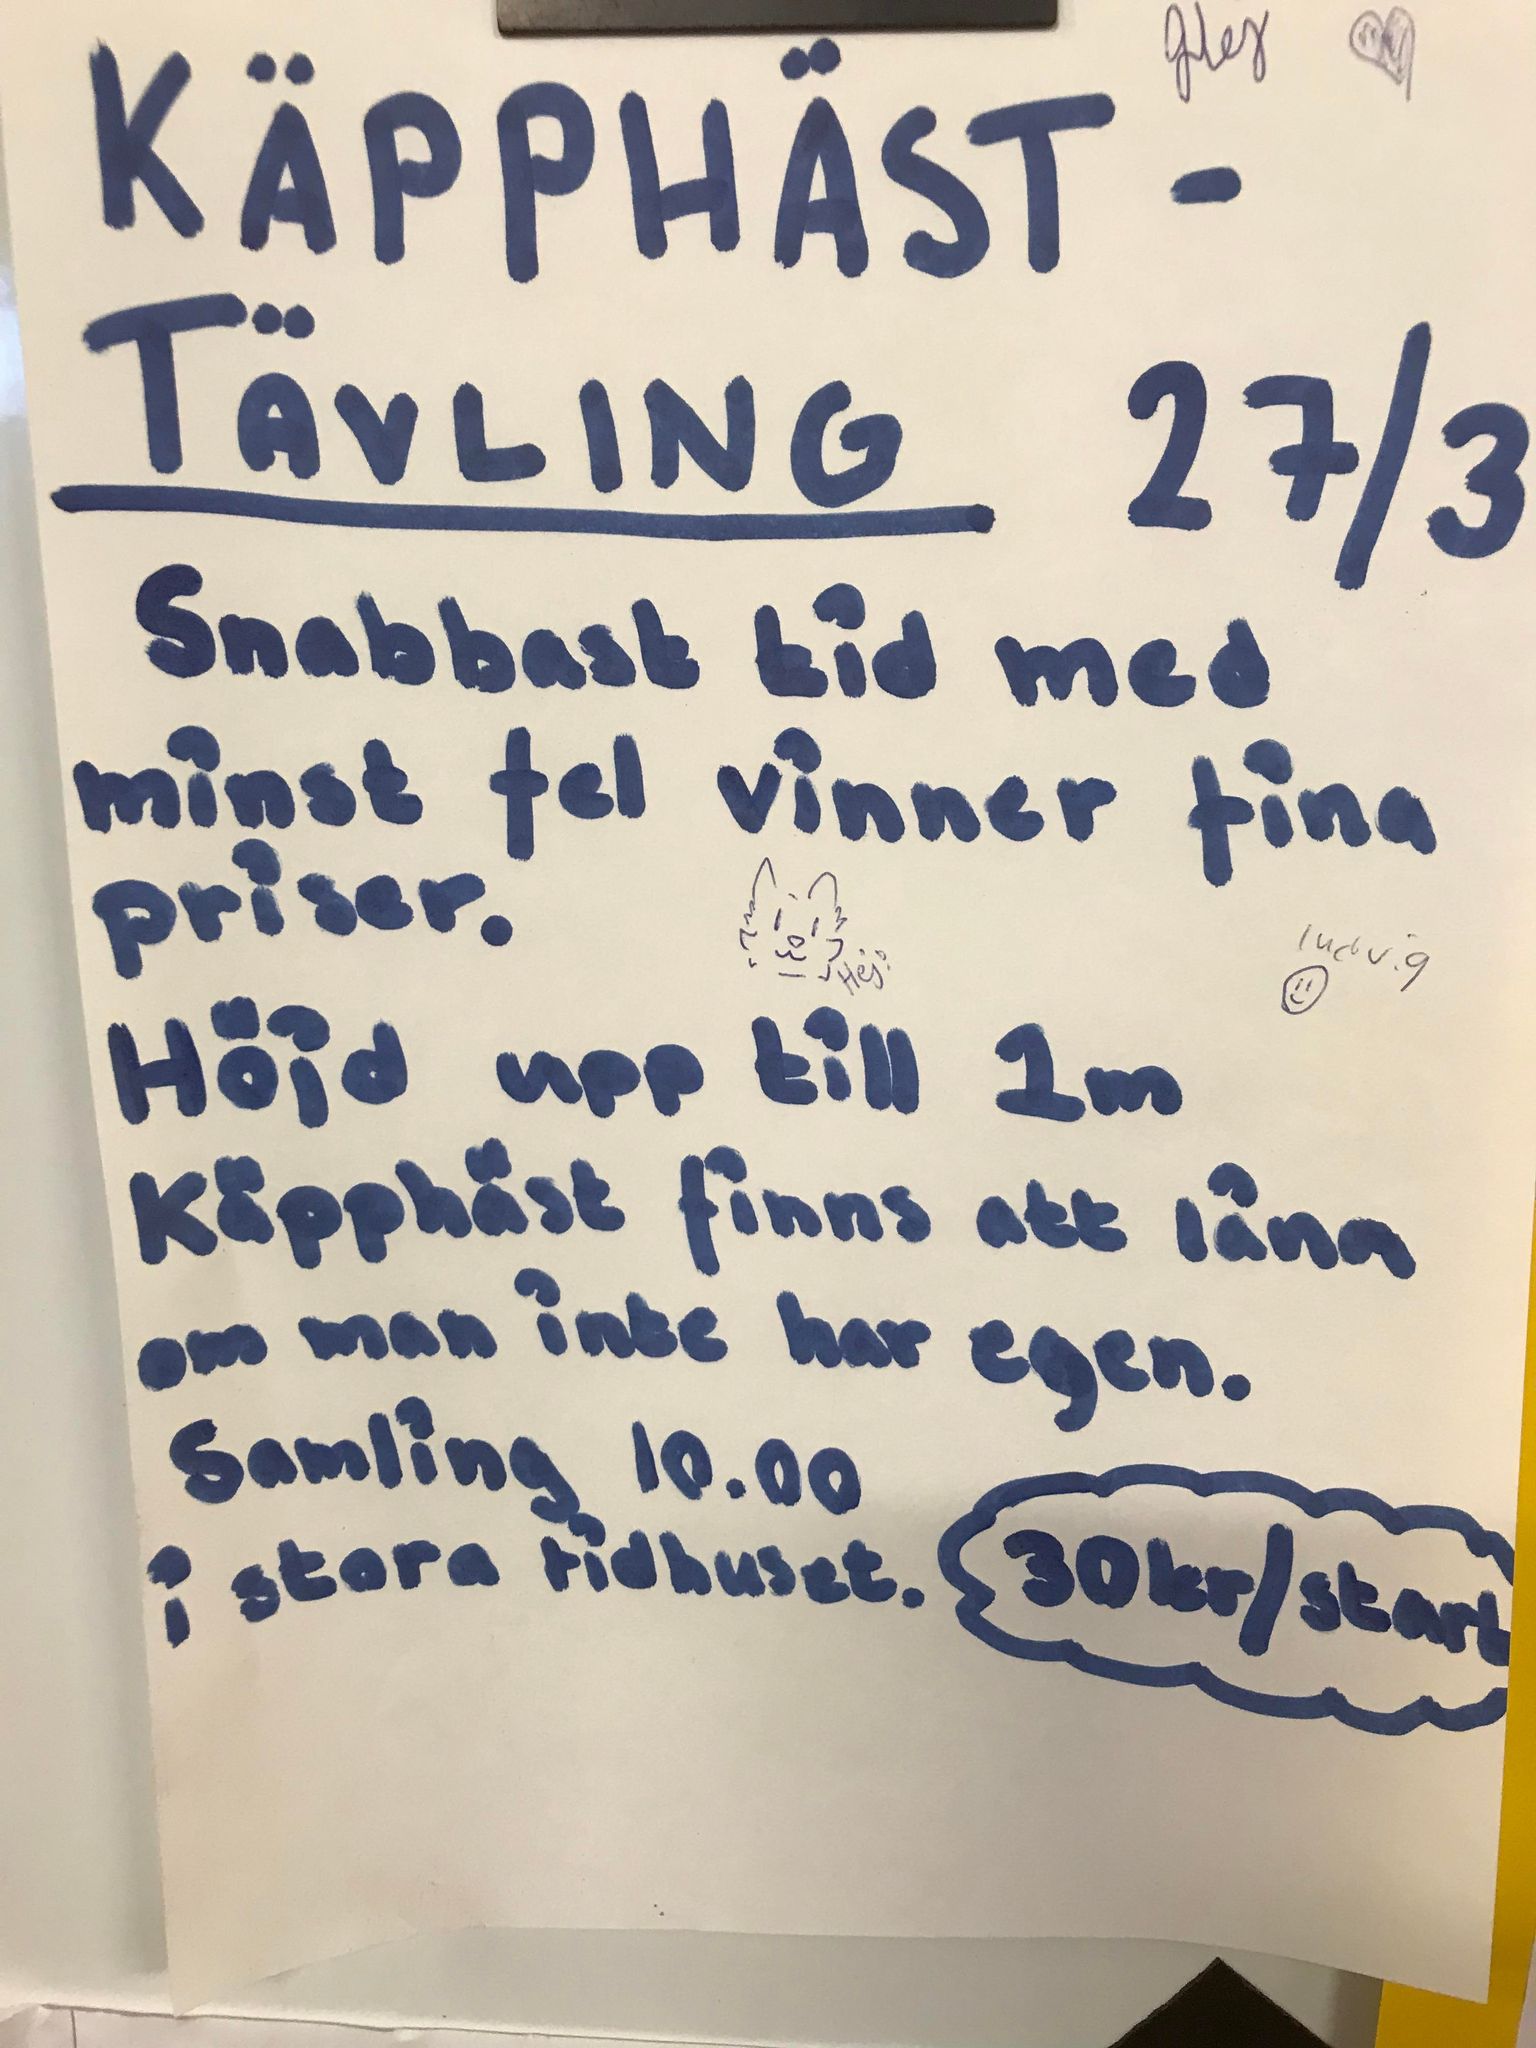 KÄPPHÄST-
TÄVLING 27/3
Snabbast tid med
minst fel vinner fina
priser.
Hej!
ludvig
Höjd upp till 1m
Käpphäst finns att låna
om man inte har egen.
Samling 10.00
i stora ridhuset. 30kr/start